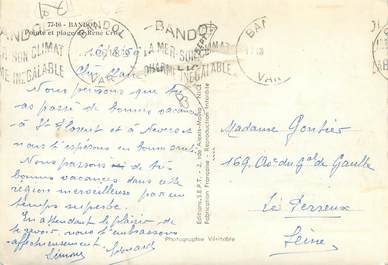 77-16 - BANDOL
Pointe et plage de René Cros
BANDOL
SON CLIMAT
INÉGALABLE
BANDOL
VAR
BANDOL
SA MER-SON CLIMAT
CHARME INÉGALABLE
BANDOL
VAR
Nous pensons que tu
as passé de bonnes vacances
à St Florent et à Nevers
nous l'espérons en bonne santé
Nous passons de très
bonnes vacances dans cette
région merveilleuse par un
temps superbe.
En attendant le plaisir de
te revoir, nous t'embrassons
affectueusement
Simone Edouard
Editions S.E.P.T. - 2, rue Alexis-Mossa - NICE
Fabrication Française - Reproduction Interdite
Photographie Véritable
Madame Gontier
169 Av. du Gal de Gaulle
Le Perreux
Seine